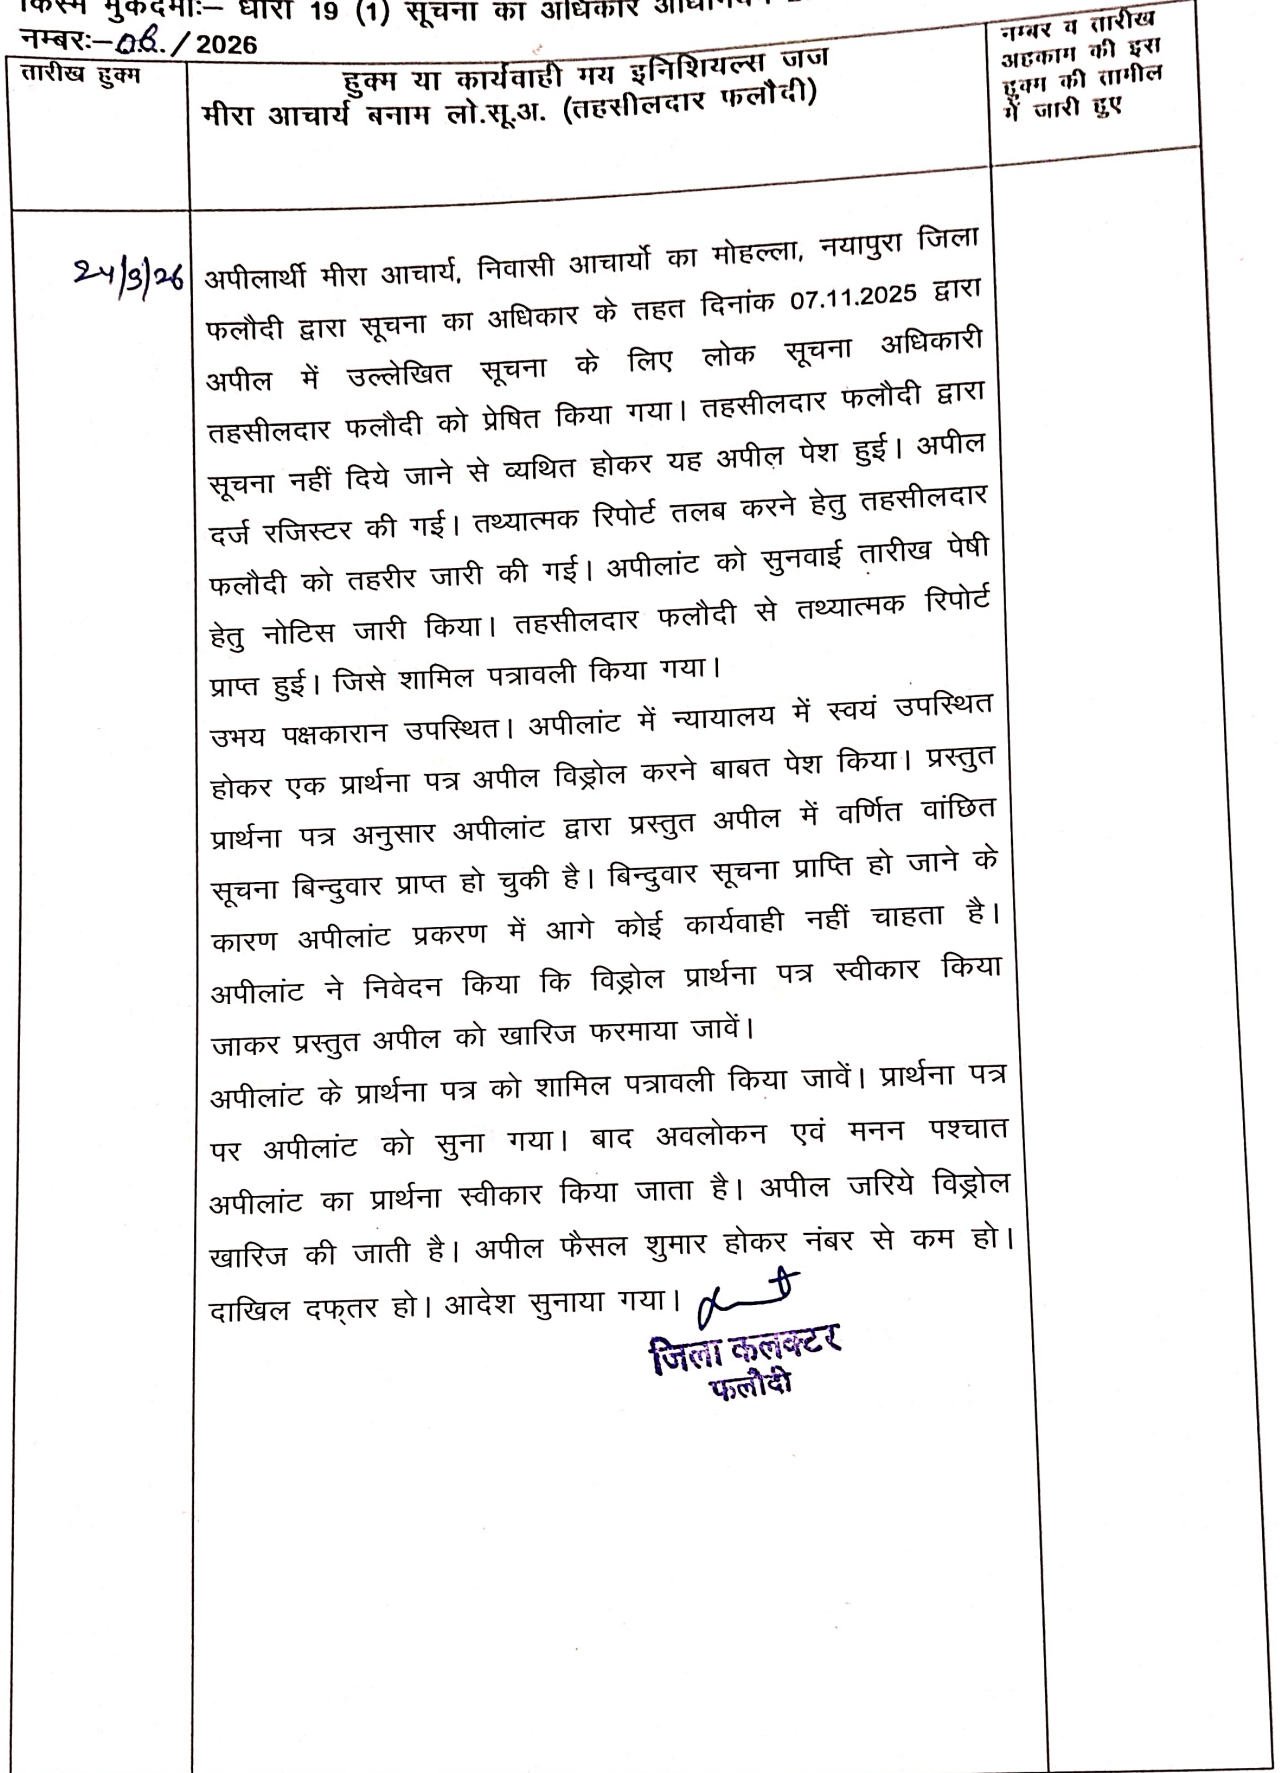 किस्म मुकदमाः– धारा 19 (1) सूचना का अधिकार
नम्बरः–08/2026
तारीख हुक्म
हुक्म या कार्यवाही मय इनिशियल्स जज
मीरा आचार्य बनाम लो.सू.अ. (तहसीलदार फलौदी)
नम्बर व तारीख
अहकाम की इस
हुक्म की तामील
में जारी हुए
24/3/26
अपीलार्थी मीरा आचार्य, निवासी आचार्यो का मोहल्ला, नयापुरा जिला
फलौदी द्वारा सूचना का अधिकार के तहत दिनांक 07.11.2025 द्वारा
अपील में उल्लेखित सूचना के लिए लोक सूचना अधिकारी
तहसीलदार फलौदी को प्रेषित किया गया। तहसीलदार फलौदी द्वारा
सूचना नहीं दिये जाने से व्यथित होकर यह अपील पेश हुई। अपील
दर्ज रजिस्टर की गई। तथ्यात्मक रिपोर्ट तलब करने हेतु तहसीलदार
फलौदी को तहरीर जारी की गई। अपीलांट को सुनवाई तारीख पेषी
हेतु नोटिस जारी किया। तहसीलदार फलौदी से तथ्यात्मक रिपोर्ट
प्राप्त हुई। जिसे शामिल पत्रावली किया गया।
उभय पक्षकारान उपस्थित। अपीलांट में न्यायालय में स्वयं उपस्थित
होकर एक प्रार्थना पत्र अपील विड्रोल करने बाबत पेश किया। प्रस्तुत
प्रार्थना पत्र अनुसार अपीलांट द्वारा प्रस्तुत अपील में वर्णित वांछित
सूचना बिन्दुवार प्राप्त हो चुकी है। बिन्दुवार सूचना प्राप्ति हो जाने के
कारण अपीलांट प्रकरण में आगे कोई कार्यवाही नहीं चाहता है।
अपीलांट ने निवेदन किया कि विड्रोल प्रार्थना पत्र स्वीकार किया
जाकर प्रस्तुत अपील को खारिज फरमाया जावें।
अपीलांट के प्रार्थना पत्र को शामिल पत्रावली किया जावें। प्रार्थना पत्र
पर अपीलांट को सुना गया। बाद अवलोकन एवं मनन पश्चात
अपीलांट का प्रार्थना स्वीकार किया जाता है। अपील जरिये विड्रोल
खारिज की जाती है। अपील फैसल शुमार होकर नंबर से कम हो।
दाखिल दफ्तर हो। आदेश सुनाया गया।
जिला कलक्टर
फलौदी